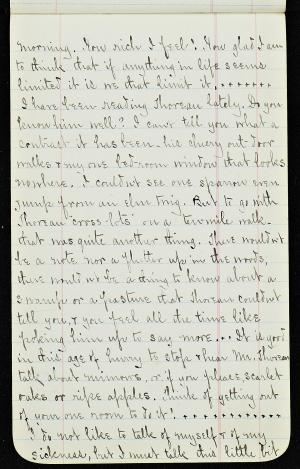 morning. How rich I feel! How glad I am
to think that if anything in life seems
limited it is we that limit it. . . . . . . .
I have been reading Thoreau lately. Do you
know him well? I can't tell you what a
contrast it has been - his cheery out-door
walks & my one bed-room window that looks
nowhere. I couldn't see one sparrow even
jump from an elm twig. But to go with
Thoreau "cross-lots" on a ten mile walk -
that was quite another thing. There wouldn't
be a note nor a flutter up in the woods,
there wouldn't be a thing to know about a
swamp or a pasture that Thoreau couldn't
tell you, & you feel all the time like
poking him up to say more... It is good
in this age of hurry to stop & hear Mr. Thoreau
talk about minnows, or if you please, scarlet
oaks or ripe apples. Think of getting out
of your one room to do it! . . . . . . . . . . . .
I do not like to talk of myself & of my
sickness, but I must talk that little bit